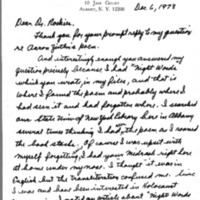 10 Jane Court
Albany, N.Y. 12208
Dec 6, 1978
Dear Dr. Roskies,
Thank you for your prompt reply to my question
re Aaron Zeitlin's poem.
And interestingly enough you answered my
question precisely because I had "Night Words"
which you wrote in my files, and that is
where I found the poem and probably where I
had seen it and had forgotten where. I searched
our State Univ of New York Library here in Albany
several times thinking I had the poem as I roamed
the book stacks. Of course I was upset with
myself forgetting, I had your Midrash right here
at home under my nose. I thought it was in
English but the transliteration confused me. Since
I was and have been interested in Holocaust
an article about "Night Words